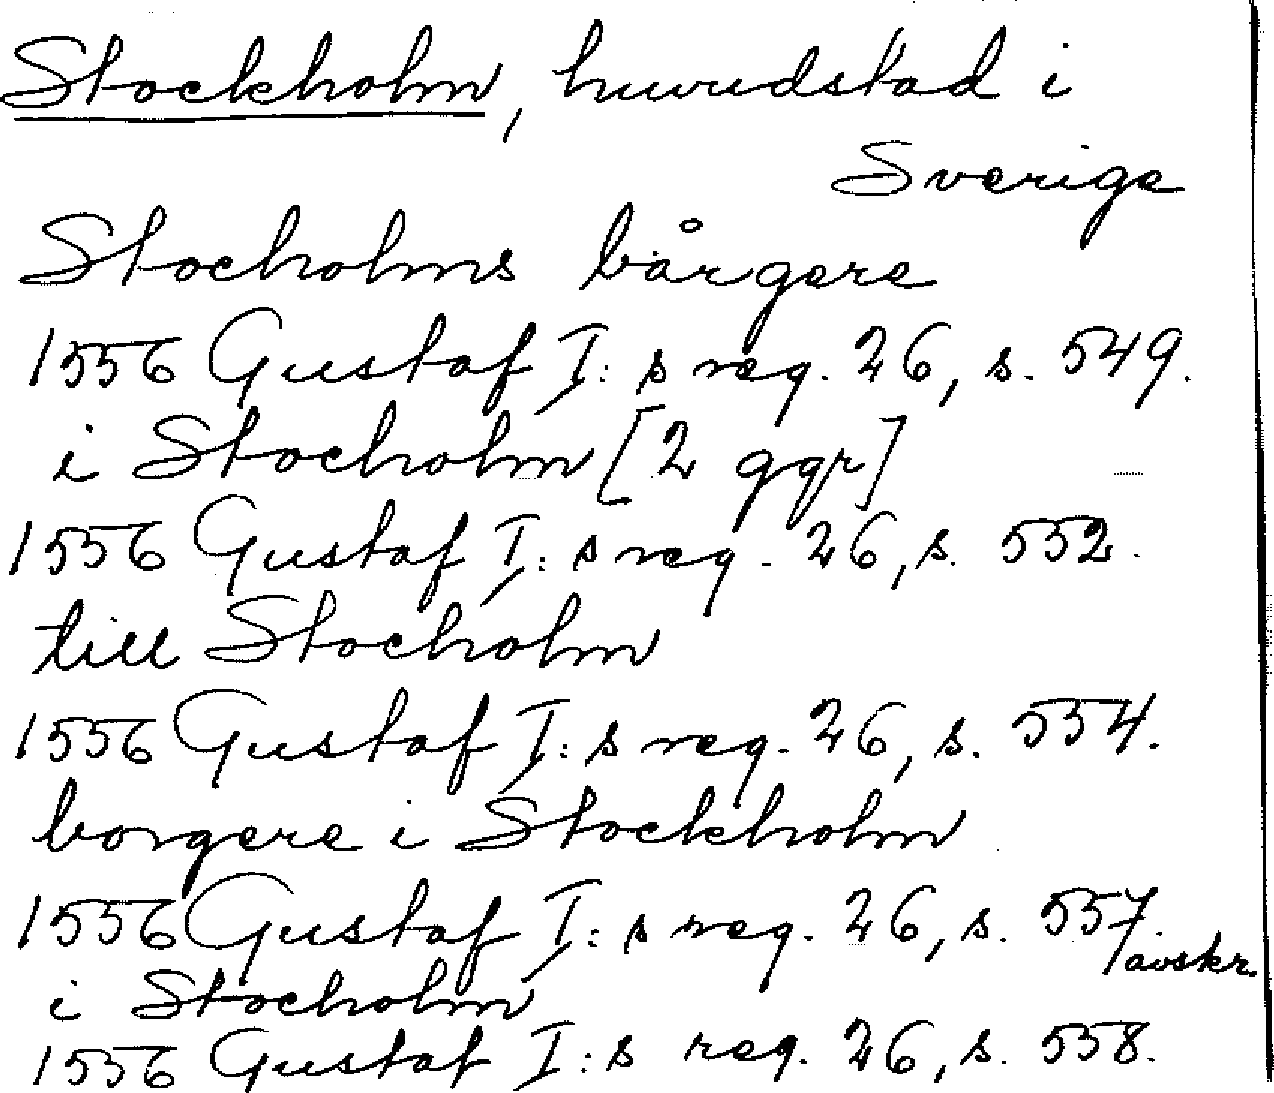 Stockholm, huvudstad i
Sverige
Stocholms bårgere
1556 Gustaf I:s reg. 26, s. 549.
i Stocholm [2 ggr]
1556 Gustaf I:s reg. 26, s. 552.
till Stocholm
1556 Gustaf I:s reg. 26, s. 554.
borgere i Stockholm
1556 Gustaf I:s reg. 26, s. 557.
/avskr.
i Stocholm
1556 Gustaf I:s reg. 26, s. 558.